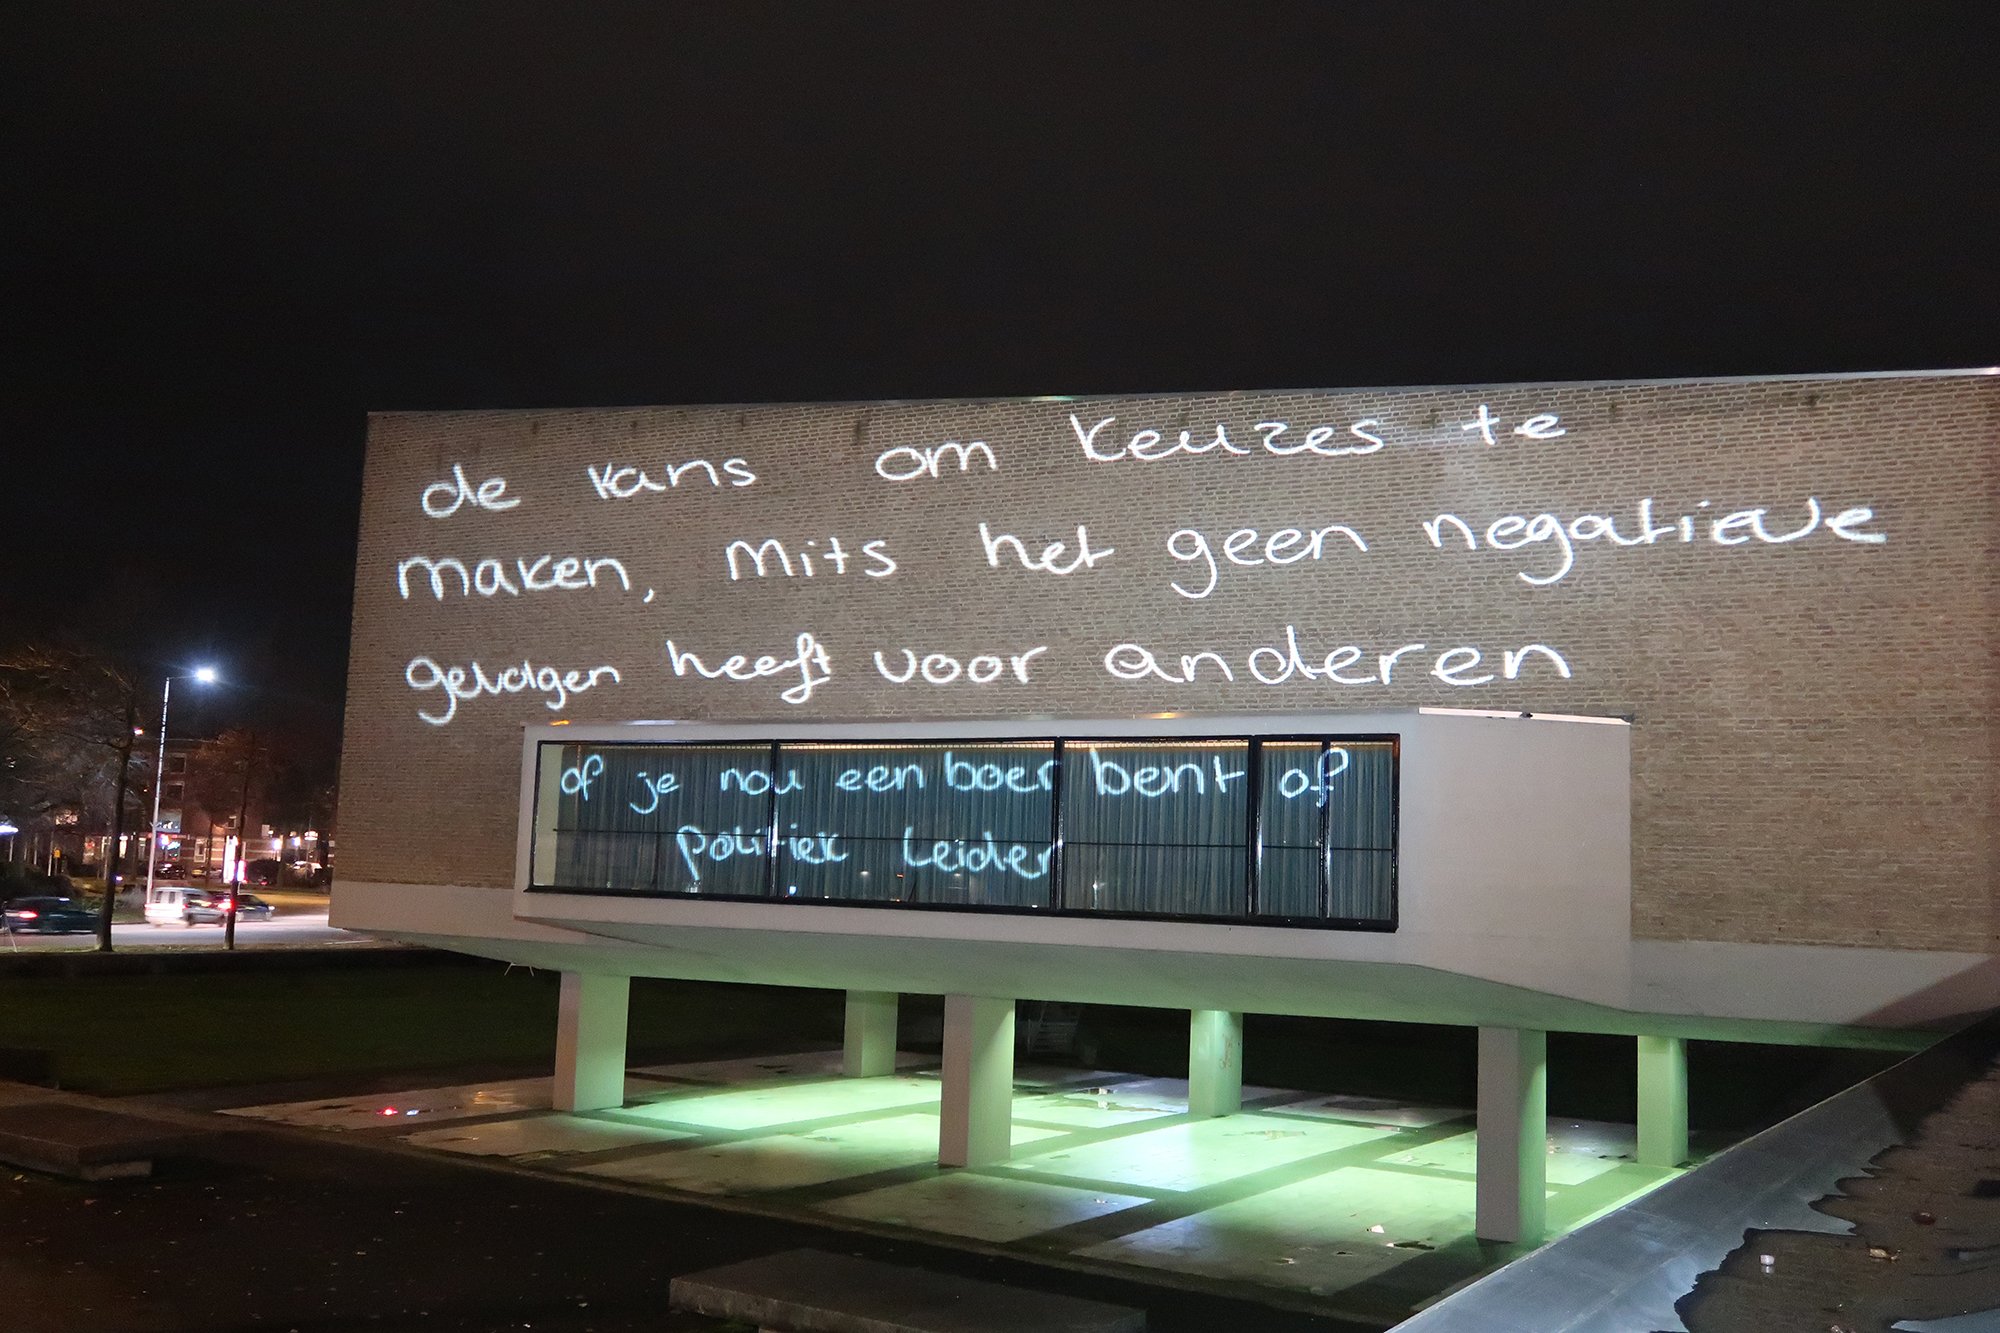 de kans om keuzes te
maken, mits het geen negatieve
gevolgen heeft voor anderen
of je nou een boer bent of
politiek leider